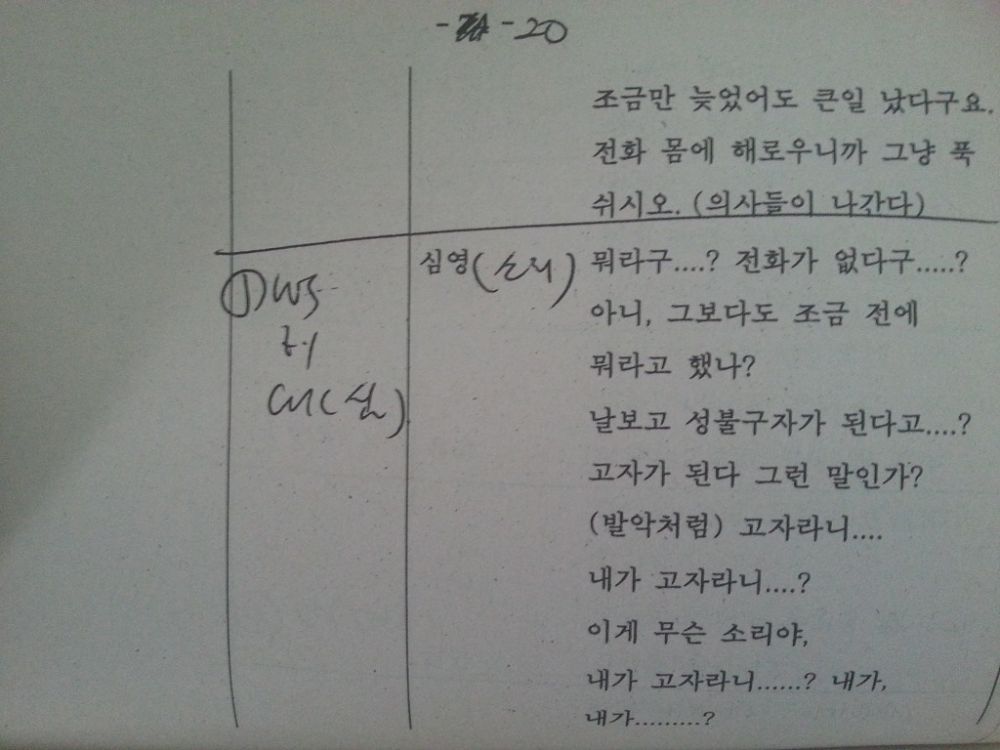 - 20
조금만 늦었어도 큰일 났다구요.
전화 몸에 해로우니까 그냥 푹
쉬시오. (의사들이 나간다)
심영(소리) 뭐라구....? 전화가 없다구.....?
① WS
아니, 그보다도 조금 전에
뭐라고 했나?
날보고 성불구자가 된다고....?
고자가 된다 그런 말인가?
(발악처럼) 고자라니....
내가 고자라니....?
이게 무슨 소리야,
내가 고자라니......? 내가,
내가.........?